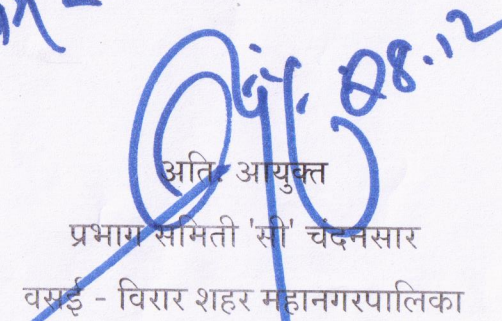 08.12
अति. आयुक्त
प्रभाग समिती 'सी' चंदनसार
वसई - विरार शहर महानगरपालिका